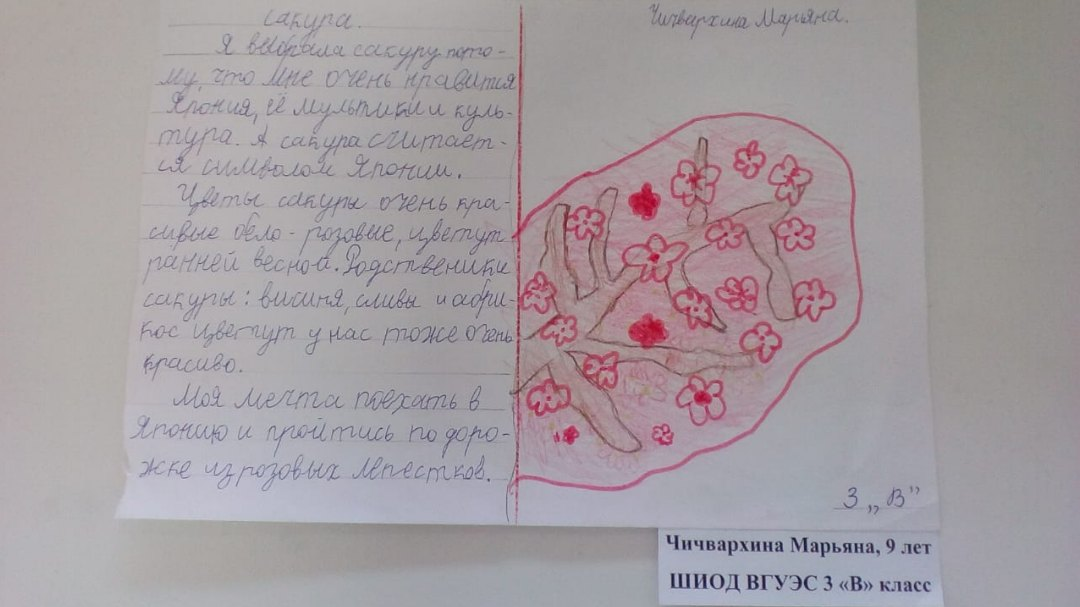 сакура.
Я выбрала сакуру пото-
му, что мне очень нравится
Япония, её мультики и куль-
тура. А сакура считает-
ся символом Японии.
Цветы сакуры очень кра-
сивые бело-розовые, цветут
ранней весной. Родственики
сакуры: вишня, сливы и абри-
кос цветут у нас тоже очень
красиво.
Моя мечта поехать в
Японию и пройтись по доро-
жке из розовых лепестков.
Чичвархина Марьяна.
3 „В"
Чичвархина Марьяна, 9 лет
ШИОД ВГУЭС 3 «В» класс